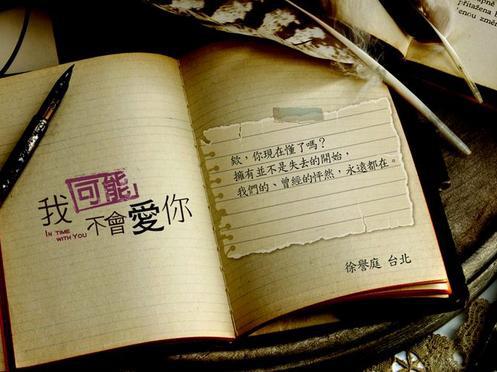 我「可能」
不會愛你
IN TIME
WITH YOU
欸，你現在懂了嗎？
擁有並不是失去的開始，
我們的、曾經的怦然，永遠都在。
徐譽庭 台北